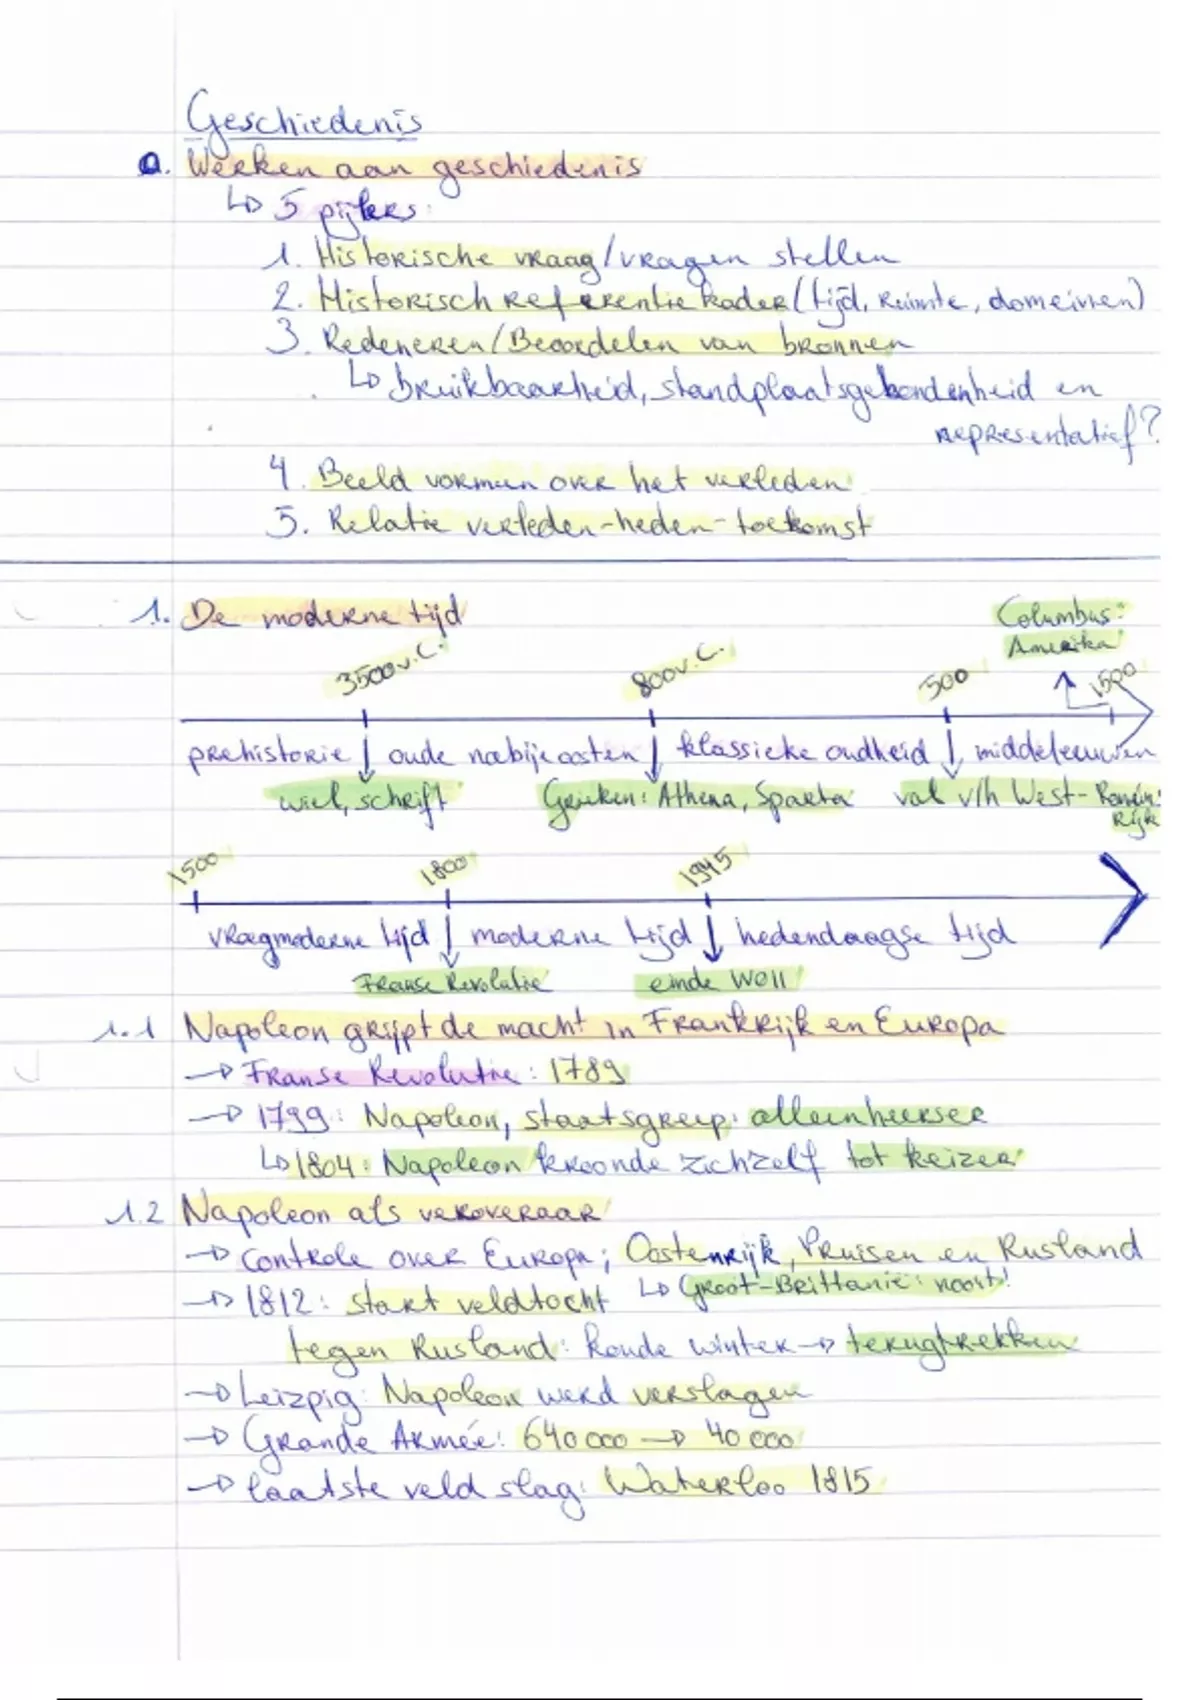 Geschiedenis
0. Werken aan geschiedenis
↳ 5 pijlers:
1. Historische vraag/vragen stellen
2. Historisch referentiekader (tijd, ruimte, domeinen)
3. Redeneren/Beoordelen van bronnen
↳ bruikbaarheid, standplaatsgebondenheid en
representatief?
4. Beeld vormen over het verleden
5. Relatie verleden-heden-toekomst
1. De moderne tijd
Columbus:
Amerika
3500 v.C. 800 v.C. 500 1500
prehistorie oude nabije oosten klassieke oudheid middeleeuwen
wiel, schrift Grieken: Athena, Sparta val v/h West-Romein.
Rijk
1500 1800 1945
vroegmoderne tijd moderne tijd hedendaagse tijd
Franse Revolutie einde WOII
1.1 Napoleon grijpt de macht in Frankrijk en Europa
→ Franse Revolutie: 1789
→ 1799: Napoleon, staatsgreep: alleenheerser
↳ 1804: Napoleon kroonde zichzelf tot keizer
1.2 Napoleon als veroveraar
→ controle over Europa; Oostenrijk, Pruisen en Rusland
→ 1812: start veldtocht ↳ Groot-Brittanie: nooit!
tegen Rusland: koude winter → terugtrekken
→ Leizpig: Napoleon werd verslagen
→ Grande Armée: 640 000 → 40 000
→ laatste veldslag: Waterloo 1815